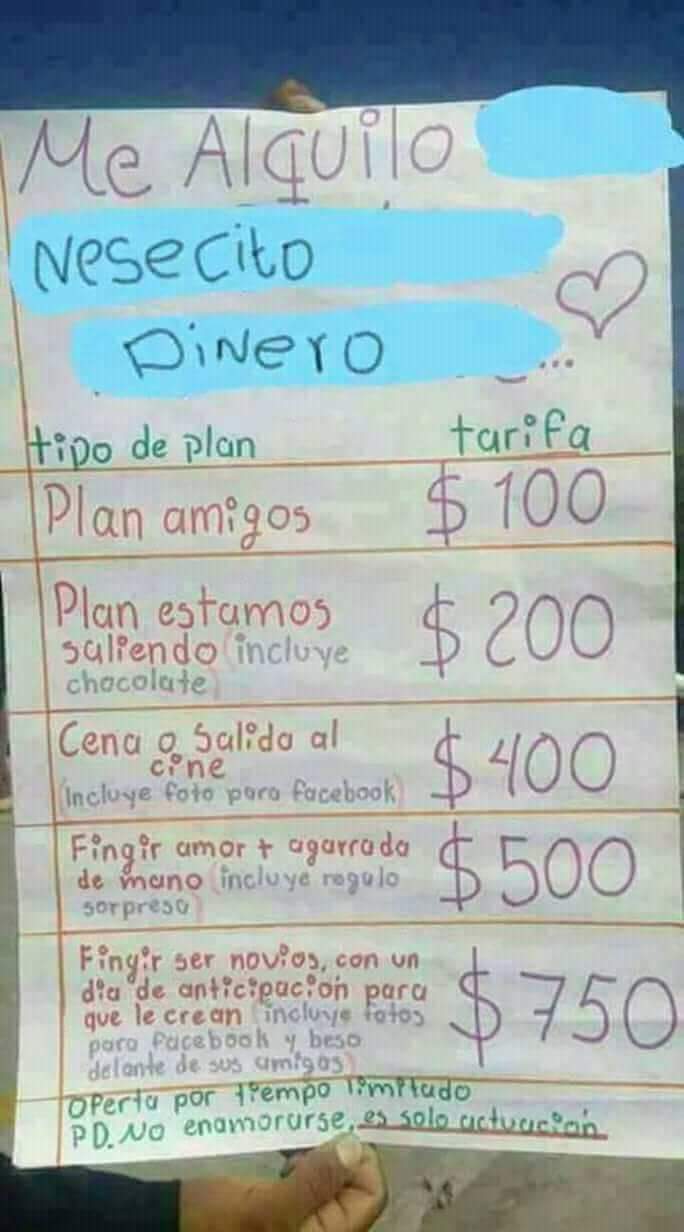 Me Alquilo
Nesecito
Dinero
tipo de plan tarifa
Plan amigos $100
Plan estamos
saliendo (incluye
chocolate)
$200
Cena o Salida al
cine
(Incluye foto para facebook)
$400
Fingir amor + agarrada
de mano (incluye regalo
sorpresa)
$500
Fingir ser novios, con un
dia de anticipación para
que le crean (incluye fotos
para facebook y beso
delante de sus amigos)
$750
Oferta por tiempo limitado
PD. No enamorarse, es solo actuación